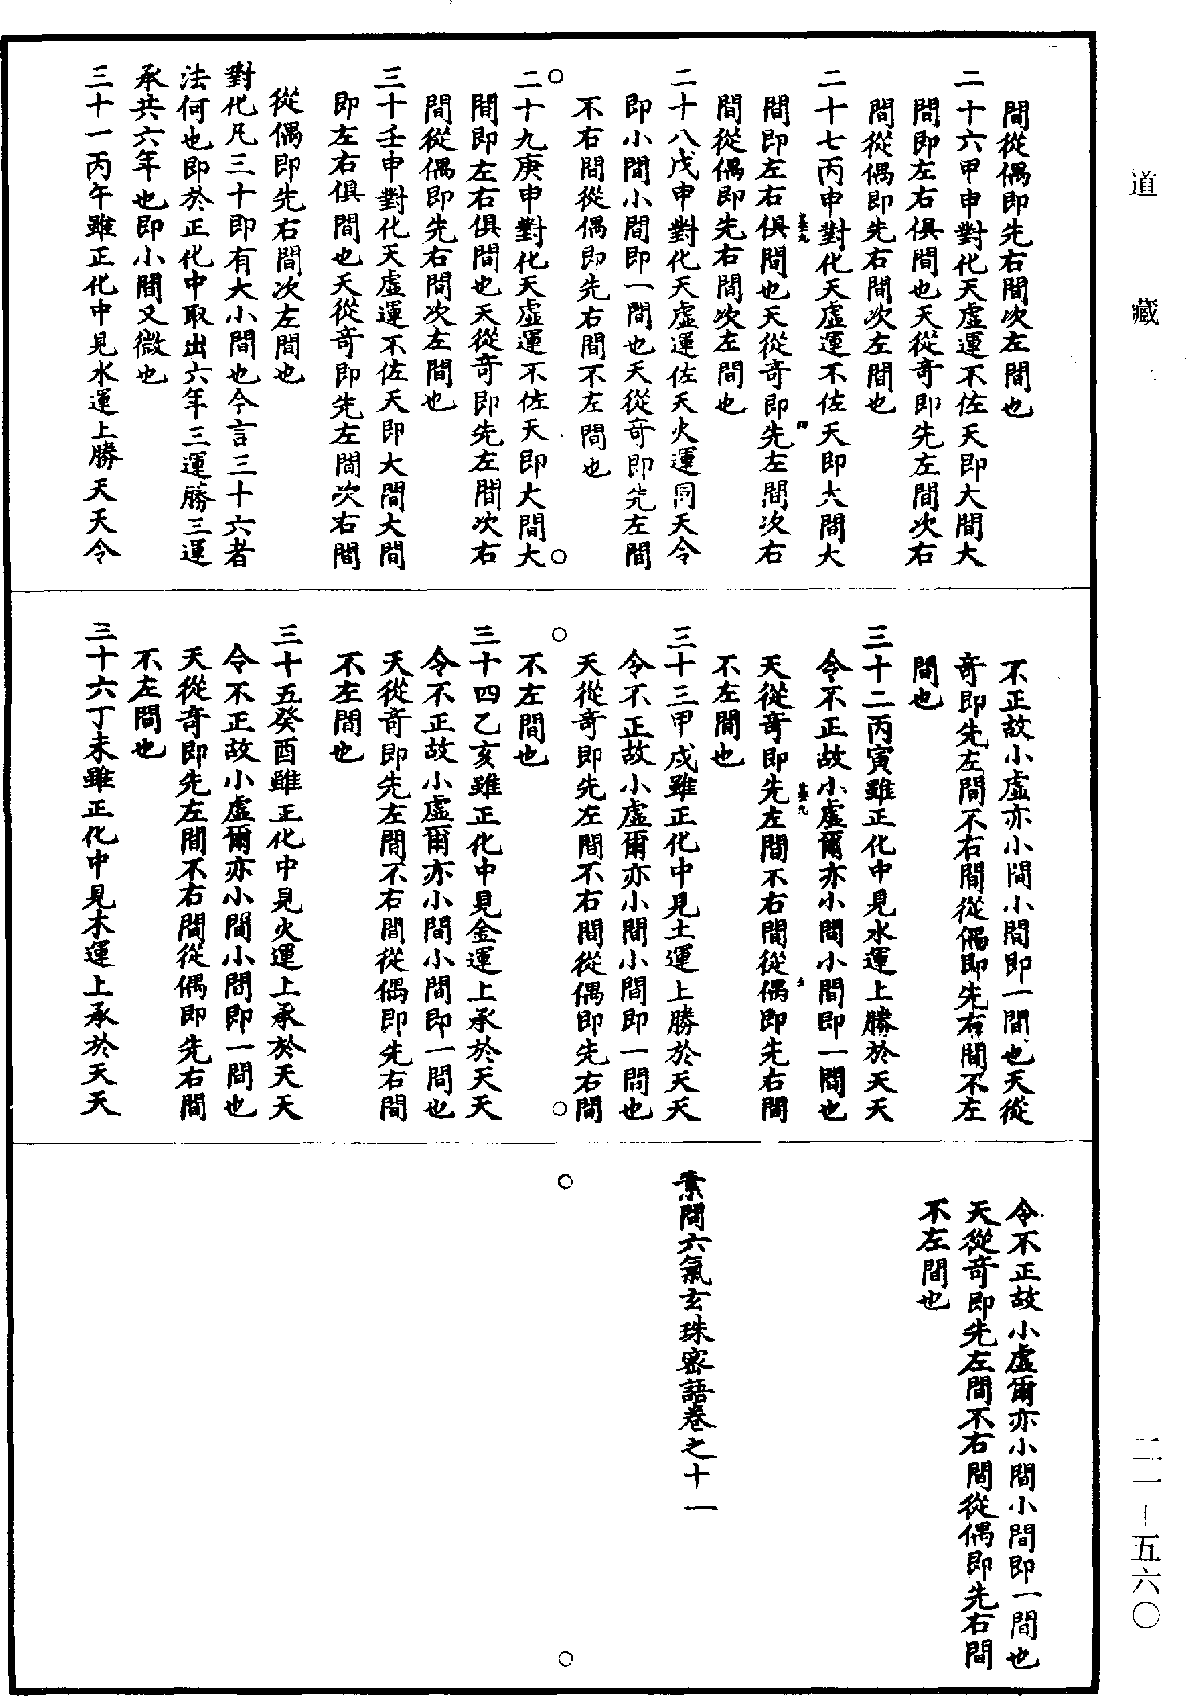 間從偶即先右間次左間也
二十六甲申對化天虛運不佐天即大間大
間即左右俱間也天從奇即先左間次右
間從偶即先右間次左間也
二十七丙申對化天虛運不佐天即大間大
間即左右俱間也天從奇即先左間次右
間從偶即先右間次左間也
二十八戊申對化天虛運佐天火運同天令
即小間小間即一間也天從奇即先左間
不右間從偶即先右間不左間也
二十九庚申對化天虛運不佐天即大間大
間即左右俱間也天從奇即先左間次右
間從偶即先右間次左間也
三十壬申對化天虛運不佐天即大間大間
即左右俱間也天從奇即先左間次右間
從偶即先右間次左間也
對化凡三十即有大小間也今言三十六者
法何也即於正化中取出六年三運勝三運
承共六年也即小間又微也
三十一丙午雖正化中見水運上勝天天令
不正故小虛亦小間小間即一間也天從
奇即先左間不右間從偶即先右間不左
間也
三十二丙寅雖正化中見水運上勝於天天
令不正故小虛爾亦小間小間即一間也
天從奇即先左間不右間從偶即先右間
不左間也
三十三甲戌雖正化中見土運上勝於天天
令不正故小虛爾亦小間小間即一間也
天從奇即先左間不右間從偶即先右間
不左間也
三十四乙亥雖正化中見金運上承於天天
令不正故小虛爾亦小間小間即一間也
天從奇即先左間不右間從偶即先右間
不左間也
三十五癸酉雖正化中見火運上承於天天
令不正故小虛爾亦小間小間即一間也
天從奇即先左間不右間從偶即先右間
不左間也
三十六丁未雖正化中見木運上承於天天
令不正故小虛爾亦小間小間即一間也
天從奇即先左間不右間從偶即先右間
不左間也
素問六氣玄珠密語卷之十一
道藏
二一-五六〇